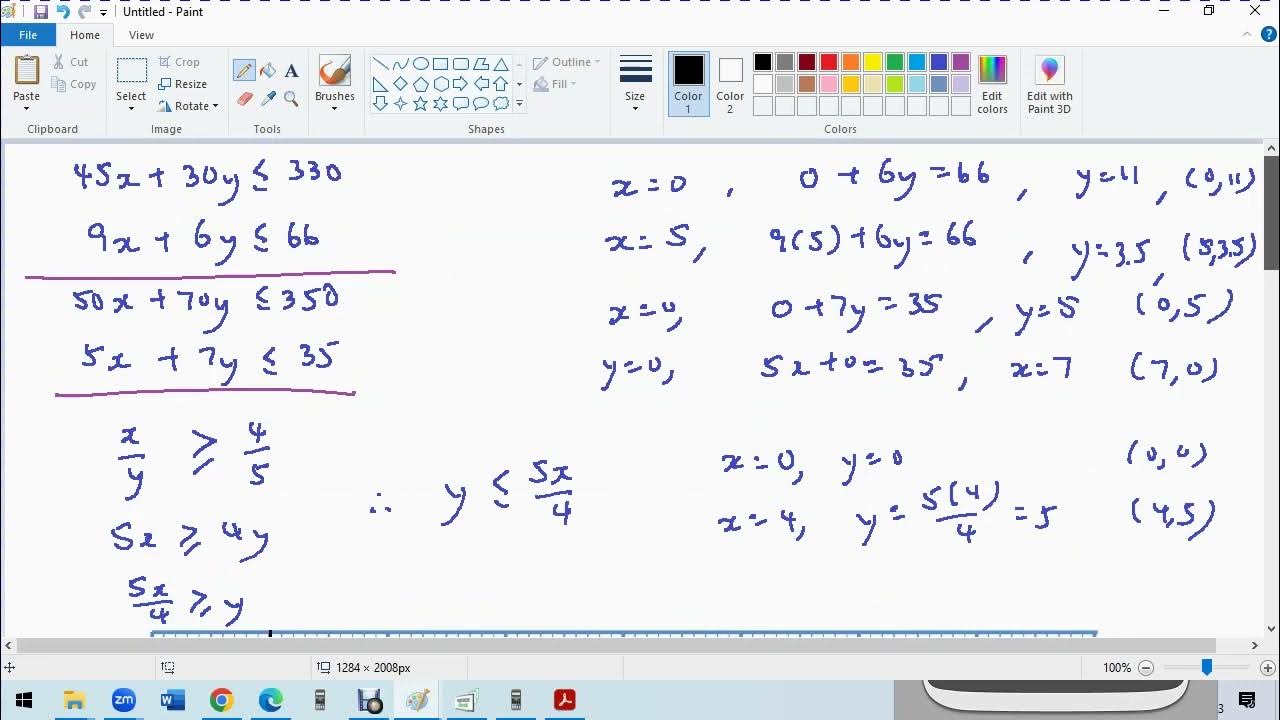 Untitled - Paint
File Home View
Paste
Cut
Copy
Clipboard
Select
Crop
Resize
Rotate
Image
A
Tools
Brushes
Outline
Fill
Shapes
Size
Color 1
Color 2
Edit colors
Colors
Edit with Paint 3D
45x + 30y ≤ 330
9x + 6y ≤ 66
50x + 70y ≤ 350
5x + 7y ≤ 35
x/y ≥ 4/5
5x ≥ 4y
5x/4 ≥ y
∴ y ≤ 5x/4
x = 0, 0 + 6y = 66, y = 11, (0, 11)
x = 5, 9(5) + 6y = 66, y = 3.5, (5, 3.5)
x = 0, 0 + 7y = 35, y = 5 (0, 5)
y = 0, 5x + 0 = 35, x = 7 (7, 0)
x = 0, y = 0 (0, 0)
x = 4, y = 5(4)/4 = 5 (4, 5)
1284 × 2008px
100%
zm
W
3